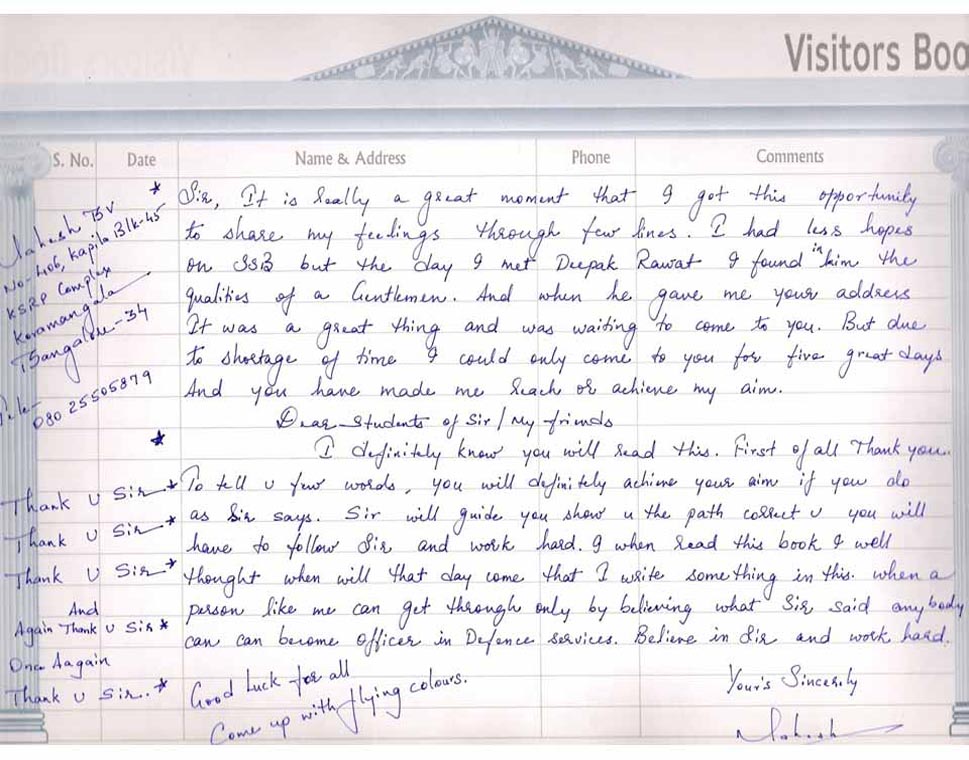 Visitors Boo
S. No. Date Name & Address Phone Comments
Mahesh BV
No-406, Kapila Blk-45
KSRP Complex
Koramangala
Bangalore-34
Tele-
080 25505879
* Sir, It is really a great moment that I got this opportunity
to share my feelings through few lines. I had less hopes
on SSB but the day I met Deepak Rawat I found in him the
qualities of a Gentlemen. And when he gave me your address
It was a great thing and was waiting to come to you. But due
to shortage of time I could only come to you for five great days
And you have made me reach or achieve my aim.
Dear Students of Sir / My friends
* I definitely know you will read this. First of all Thank you.
To tell u few words, you will definitely achieve your aim if you do
as Sir says. Sir will guide you show u the path correct u you will
have to follow Sir and work hard. I when read this book I well
thought when will that day come that I write something in this. when a
person like me can get through only by believing what Sir said anybody
can can become officer in Defence services. Believe in Sir and work hard.
Thank U Sir *
Thank U Sir *
Thank U Sir *
And
Again Thank U Sir *
Once Aagain
Thank U Sir.. *
Good Luck for all
Come up with flying colours.
Your's Sincerly
Mahesh